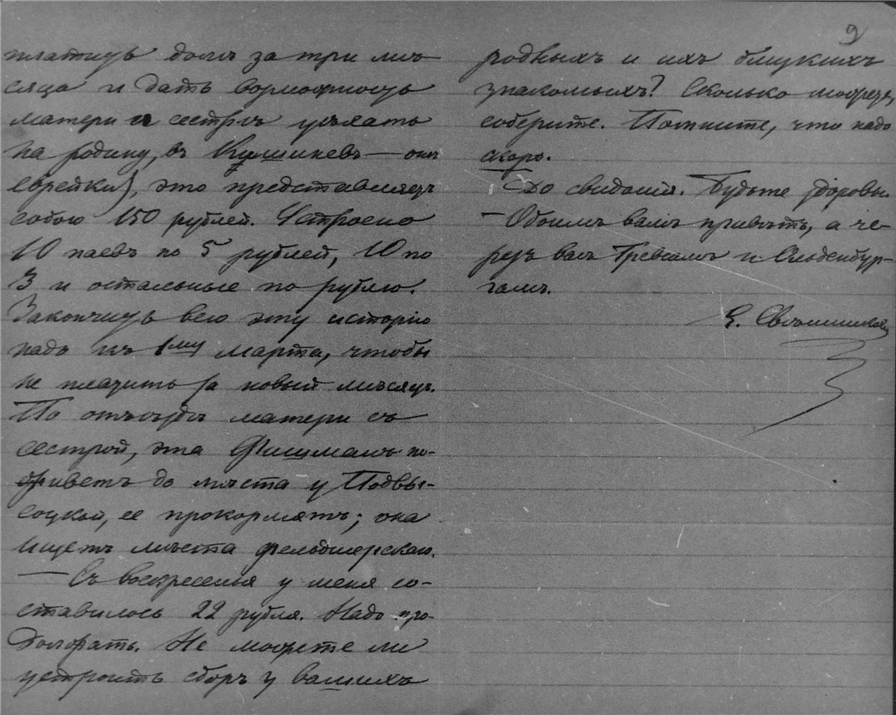 платить долгъ за три мѣ-
сяца и дать возможность
матери и сестрѣ уѣхать
на родину, въ Кишиневъ — онѣ
еврейки), это представляетъ
собою 150 рублей. Устроено
10 паевъ по 5 рублей, 10 по
3 и остальные по рублю.
Закончить всю эту исторію
надо къ 1му марта, чтобы
не платить за новый мѣсяцъ.
По отъѣздѣ матери съ
сестрой, эта Фишманъ по-
живетъ до мѣста у Подвы-
соцкой, ее прокормятъ; она
ищетъ мѣста фельдшерскаго.
— Съ воскресенья у меня со-
ставилось 22 рубля. Надо про-
должать. Не можете ли
устроить сборъ у вашихъ
9
родныхъ и ихъ близкихъ
знакомыхъ? Сколько можете,
соберите. Помните, что надо
скоро.
До свиданія. Будьте здоровы
— Обоимъ вамъ привѣтъ, а че-
резъ васъ Гревсамъ и Ольденбур-
гамъ.
Е. Свѣшникова